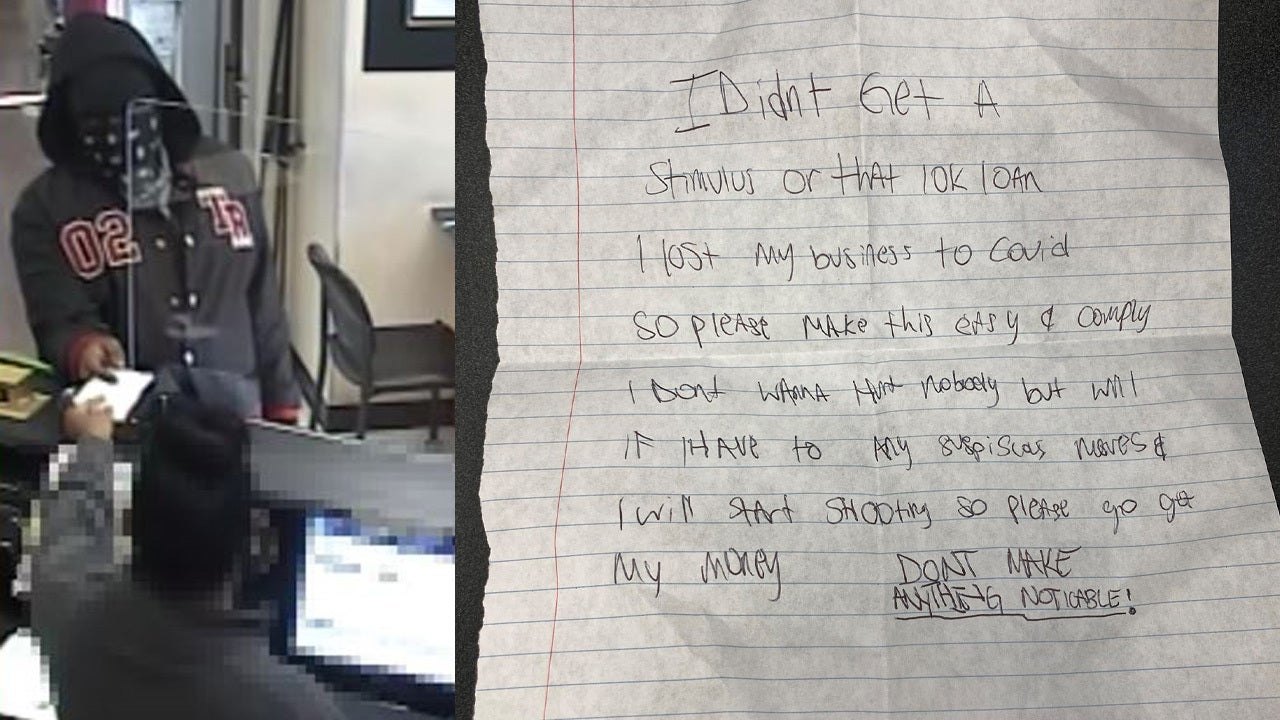 02 TR
I Didnt Get A
Stimulus or that 10K loan
I lost my business to Covid
So please make this easy & comply
I Dont wanna Hurt nobody but will
IF I HAVE to Any suspiscas moves &
I will start shooting so please go get
My money DONT MAKE
ANYTHING NOTICABLE!